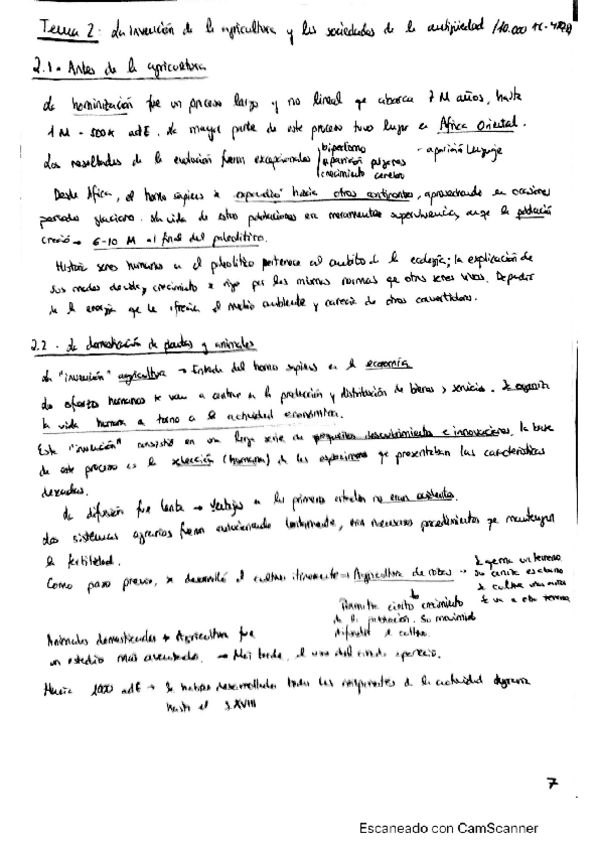 Tema 2: La Invención de la agricultura y las sociedades de la antigüedad (10.000 AC-
2.1 - Antes de la agricultura
La hominización fue un proceso largo y no lineal que abarca 7 M años, hasta
1 M - 500k adE. La mayor parte de este proceso tuvo lugar en África Oriental.
Los resultados de la evolución fueron excepcionales bipedismo - aparición lenguaje
aparición pulgares
crecimiento cerebro
Desde África, el homo sapiens se expandió hacia otros continentes, aprovechando en ocasiones
periodos glaciares. La vida de estas poblaciones era meramente supervivencia, aunque la población
creció → 6-10 M al final del paleolítico.
Historia seres humanos en el paleolítico pertenece al ámbito de la ecología; la explicación de
sus modos de vida y crecimiento se rige por las mismas normas que otros seres vivos. Dependían
de la energía que le ofrecía el medio ambiente y carecía de otros convertidores.
2.2 - La domesticación de plantas y animales
La "invención" agricultura → Entrada del homo sapiens en la economía
Los esfuerzos humanos se van a centrar en la producción y distribución de bienes y servicios. Se organiza
la vida humana en torno a la actividad económica.
Esta "invención" consistió en una larga serie de pequeños descubrimientos e innovaciones, la base
de este proceso es la selección (humana) de los especímenes que presentaban las características
deseadas.
La difusión fue lenta → Ventajas en los primeros estadios no eran evidentes.
Los sistemas agrarios fueron evolucionando lentamente, eran necesarios procedimientos que mantengan
la fertilidad.
Como paso previo, se desarrolló el cultivo itinerante → Agricultura de rozas → Se quema un terreno
Su ceniza es abono
Se cultiva unos años
Se va a otro terreno
Permite cierto crecimiento
de la población. Su movilidad
dificulta la cultura.
Animales domesticados + Agricultura fue
un estadio más avanzado. → Más tarde, el uso del arado apareció.
Hacia 1000 adE → Se habían desarrollado todos los componentes de la actividad agraria
hasta el S.XVIII
7
Escaneado con CamScanner